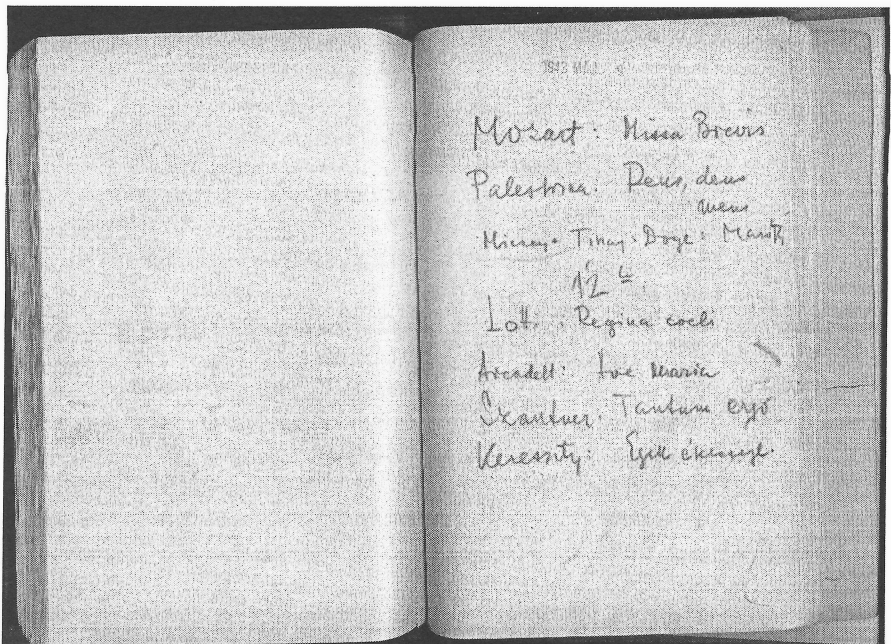 1942 MÁJ.
Mozart: Missa Brevis
Palestrina: Deus, deus
meus
Doge: Maróti
12
Lotti: Regina coeli
Arcadelt: Ave Maria
Szántner: Tantum ergó
Kereszty: Égen ékesség